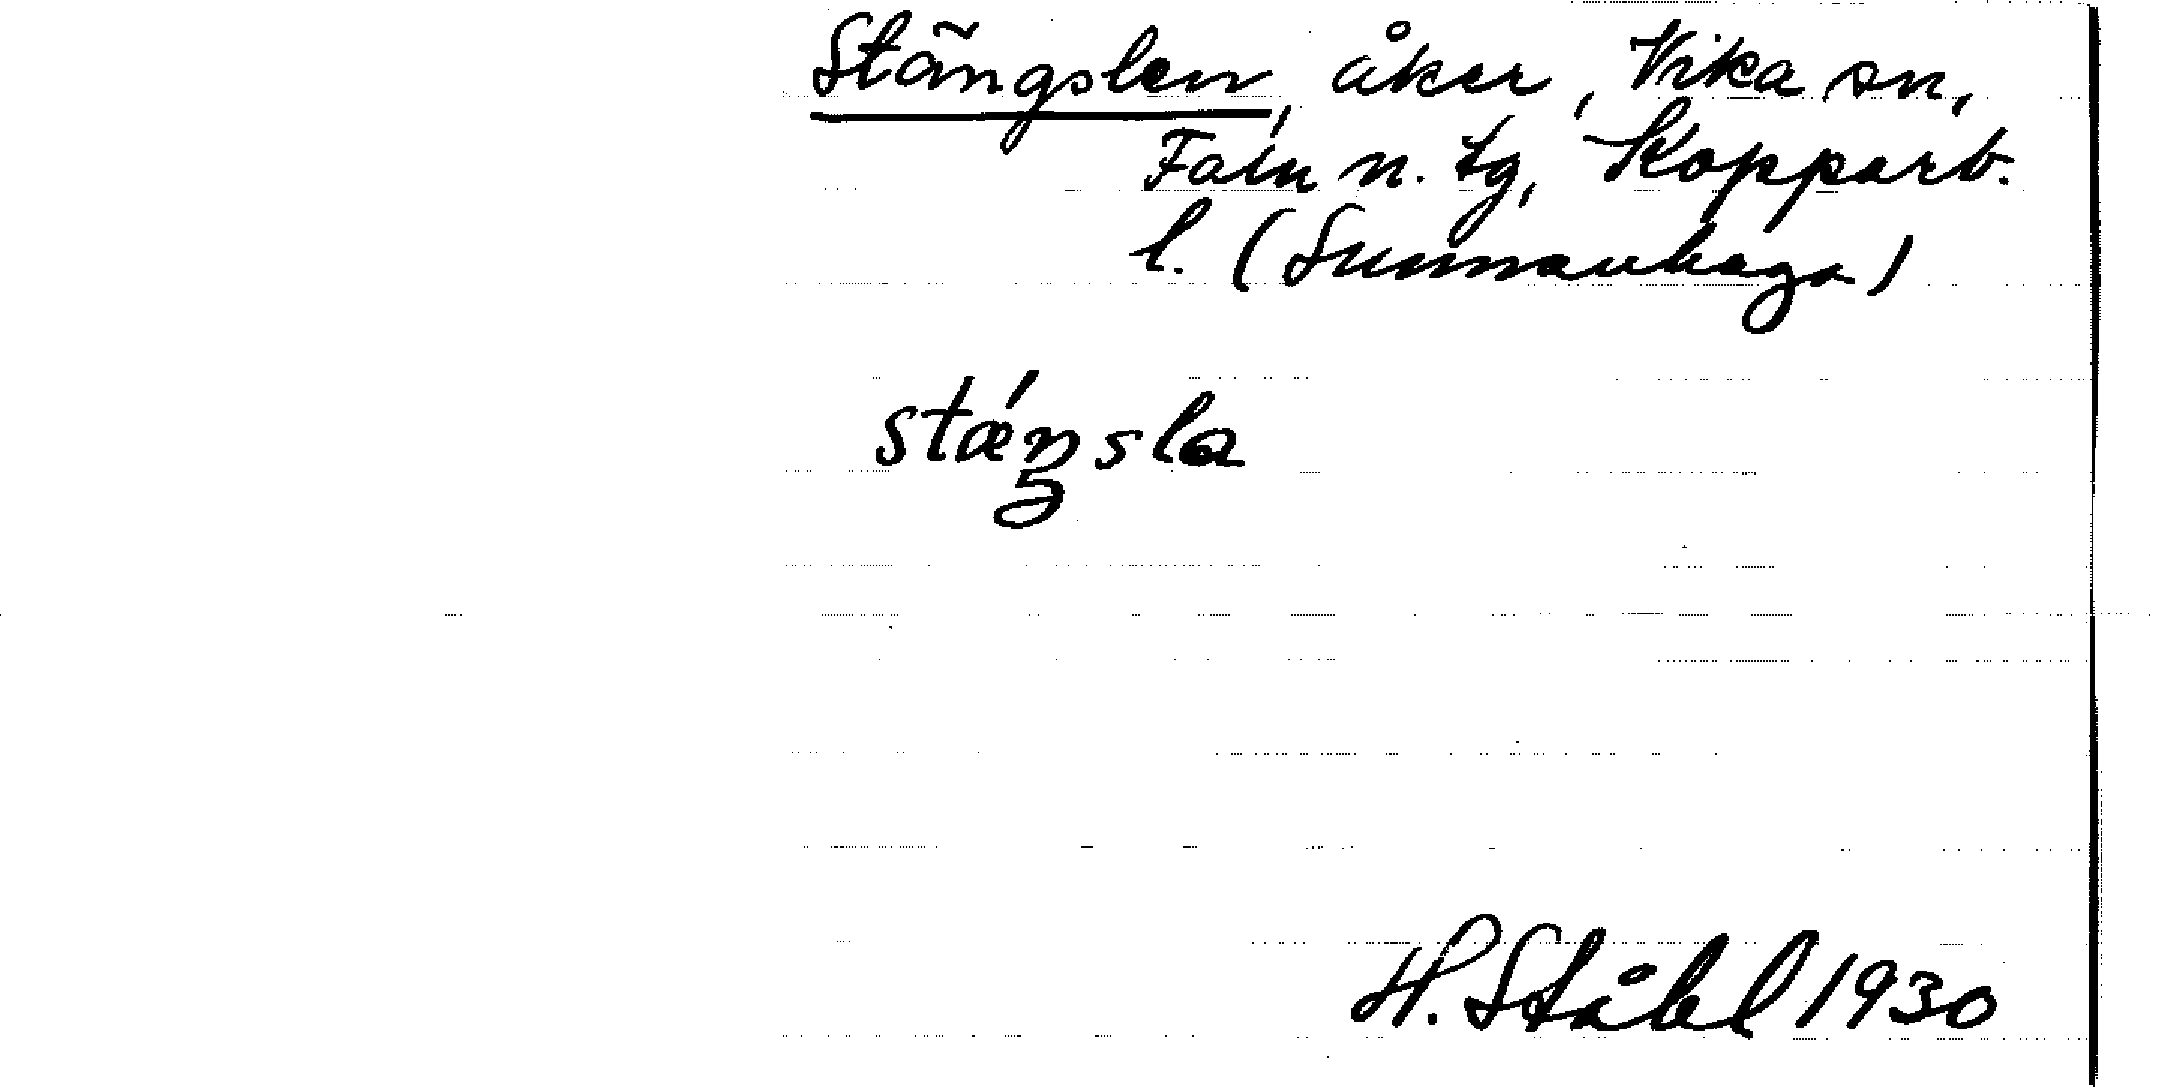 Stängslen, åker, Vika sn,
Falu n. tg, Kopparb.
l. (Sunnanhaga)
stǽŋsla
H. Ståhl 1930